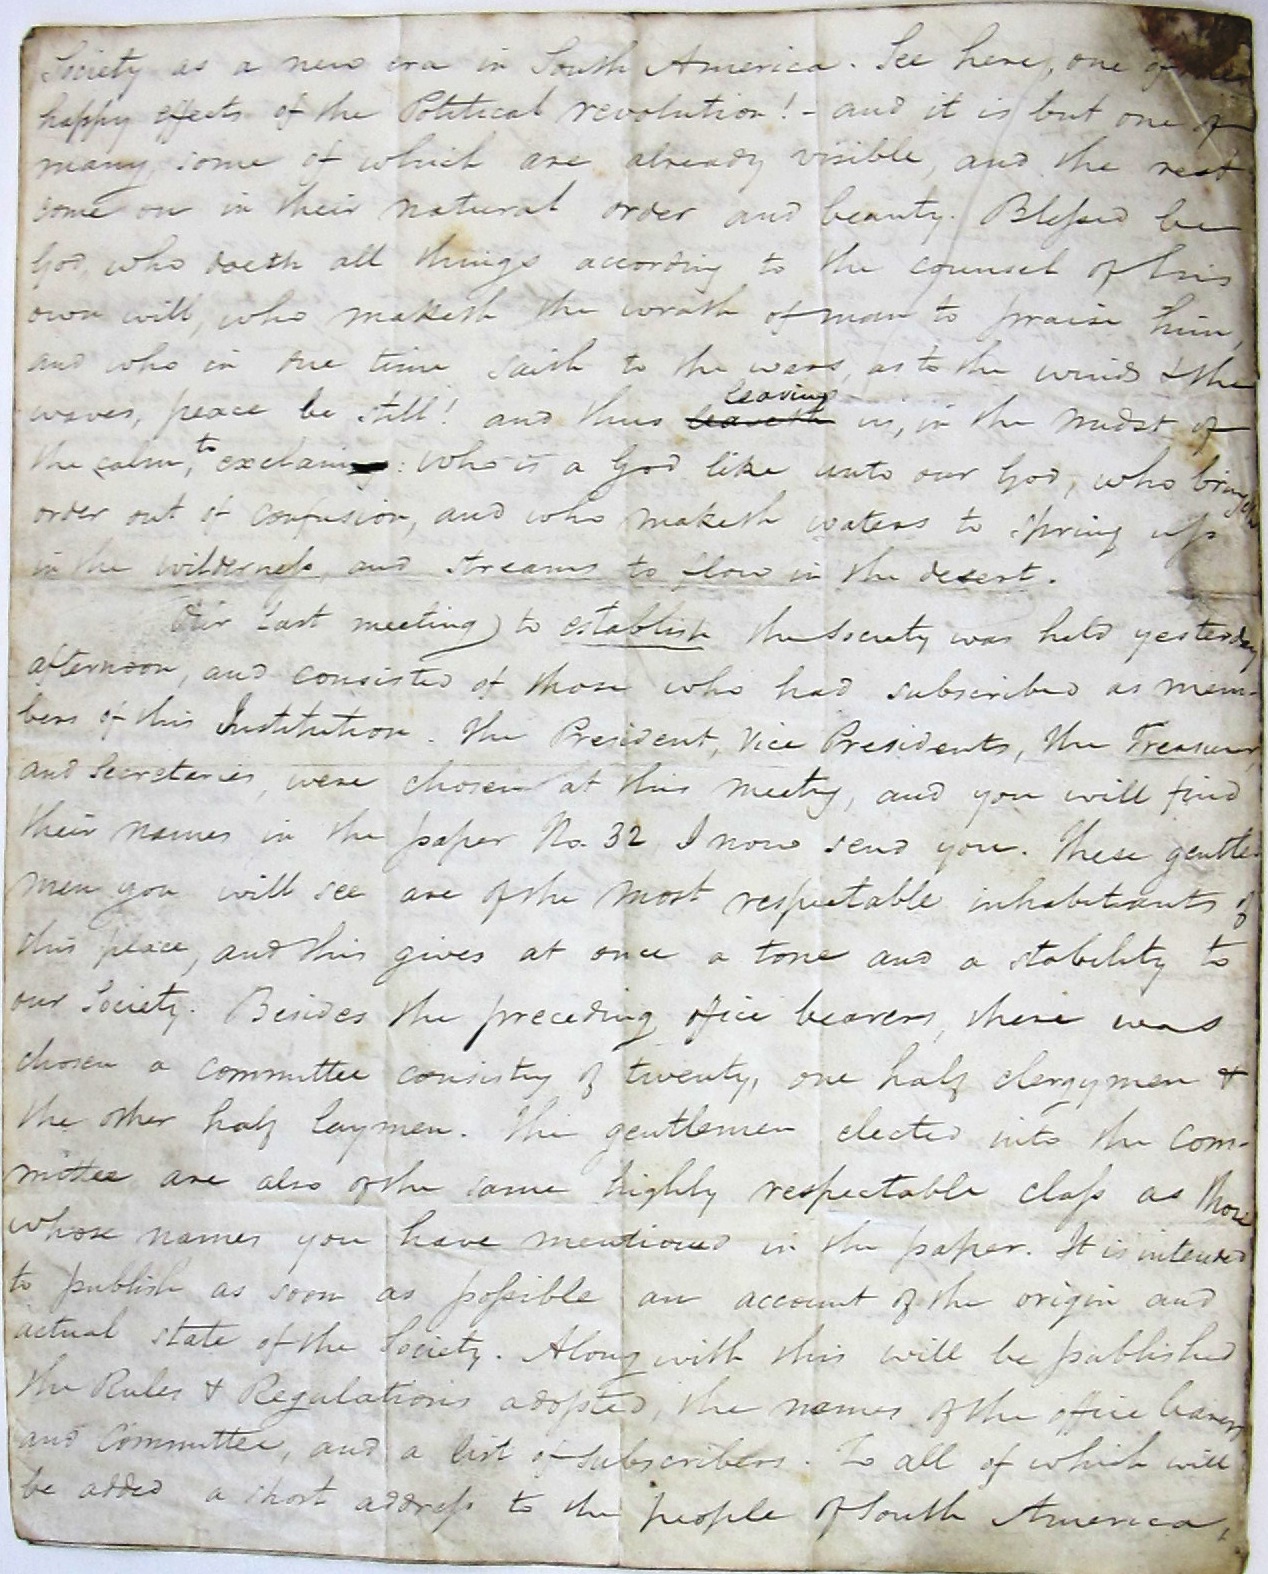 Society as a new era in South America. See here, one of
happy effects of the Political revolution! - and it is but one of
many, some of which are already visible, and the rest
come on in their natural order and beauty. Blessed be
God, who doeth all things according to the counsel of his
own will, who maketh the wrath of man to praise him,
and who in due time saith to the wars, as to the winds & the
waves, peace be still! and thus leaveth leaving us, in the midst of
the calm, to exclaim: Who is a God like unto our God, who bringeth
order out of confusion, and who maketh waters to spring up
in the wilderness, and streams to flow in the desert.
Our last meeting to establish the Society was held yesterday
afternoon, and consisted of those who had subscribed as mem-
bers of this Institution. The President, Vice Presidents, the Treasurer,
and Secretaries, were chosen at this meeting, and you will find
their names in the paper No. 32 I now send you. These gentle
men you will see are of the most respectable inhabitants of
this place, and this gives at once a tone and a stability to
our Society. Besides the preceding office bearers, there was
chosen a committee consisting of twenty, one half clergymen &
the other half laymen. The gentlemen elected into the Com-
mittee are also of the same highly respectable class as those
whose names you have mentioned in the paper. It is intended
to publish as soon as possible an account of the origin and
actual state of the Society. Along with this will be published
the Rules & Regulations adopted, the names of the office bearers
and Committee, and a list of subscribers. To all of which will
be added a short address to the people of South America,